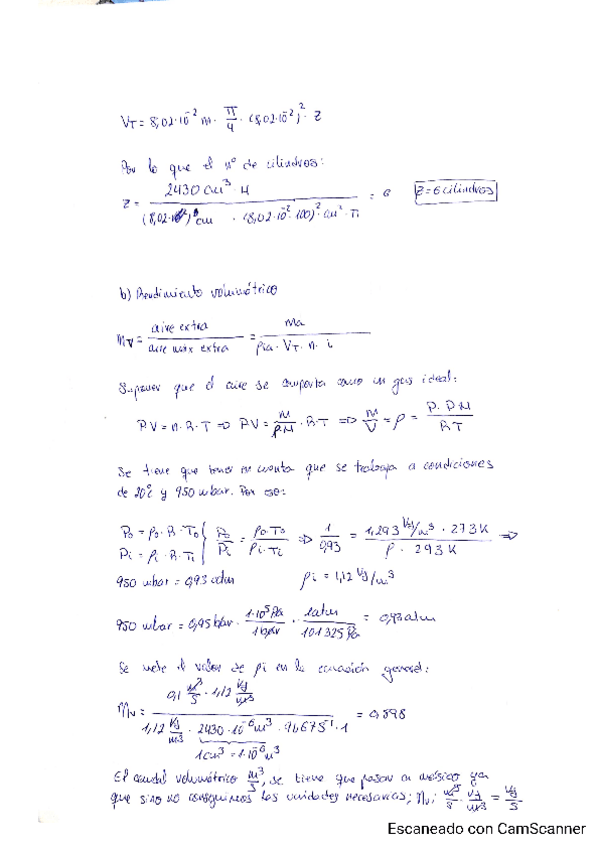 V_T = 8,02·10⁻² m · π/4 · (8,02·10⁻²)² · z
Por lo que el nº de cilindros:
z = 2430 cm³ · 4 / (8,02·10²) cm · (8,02·10⁻²·100)² cm² · π = 6 z = 6 cilindros
b) Rendimiento volumétrico
η_V = aire extra / aire máx extra = ma / ρia · V_T · n · i
Suponer que el aire se comporta como un gas ideal:
P·V = n·R·T ⇒ P·V = m/PM · R·T ⇒ m/V = ρ = P·PM / R·T
Se tiene que tener en cuenta que se trabaja a condiciones
de 20ºC y 950 mbar. Por eso:
P₀ = ρ₀·R·T₀
Pi = ρi·R·Ti } P₀/Pi = ρ₀·T₀ / ρi·Ti ⇒ 1/0,93 = 1,293 kg/m³ · 273K / ρ · 293K ⇒
950 mbar = 0,93 atm ρi = 1,12 kg/m³
950 mbar = 0,95 bar · 1·10⁵ Pa / 1 bar · 1 atm / 101325 Pa = 0,93 atm
Se mete el valor de ρi en la ecuación general:
η_V = 0,1 m³/s · 1,12 kg/m³ / 1,12 kg/m³ · 2430·10⁻⁶ m³ · s⁻¹ · 1 = 0,898
1 cm³ = 1·10⁻⁶ m³
El caudal volumétrico m³/s, se tiene que pasar a másico ya
que sino no conseguimos las unidades necesarias; η_V: m³/s · kg/m³ = kg/s
Escaneado con CamScanner